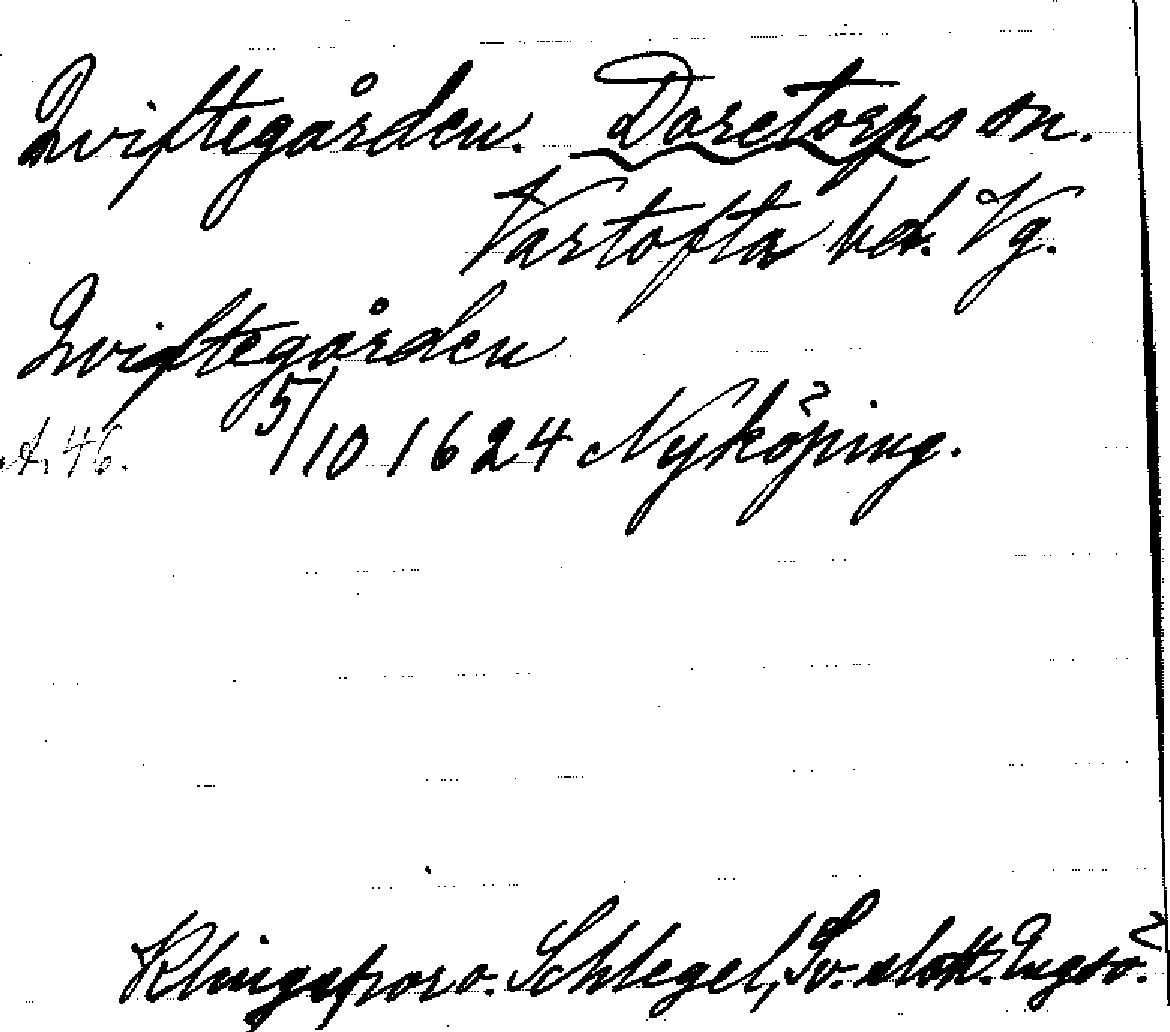 Qviftegården. Daretorps sn.
Vartofta hd. Vg.
Qviftegården
A. 46. 5/10 1624 Nyköping.
Klingspor o. Schlegel, Sv. slott. Engsö.